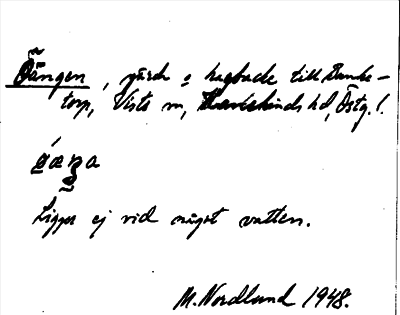 Ängen, gärde o hagbacke till Banke-
torp, Vists sn, Hanekinds hd, Östg.l.
Ligger ej vid något vatten.
M. Nordlund 1948.